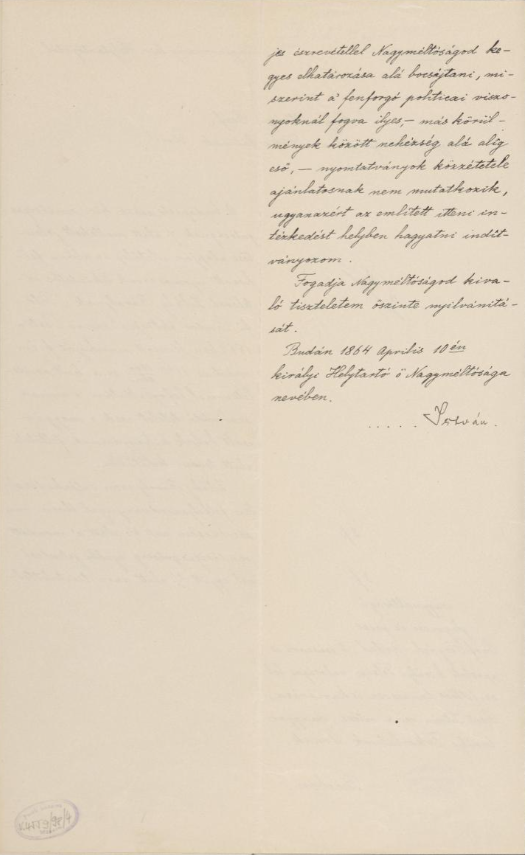 jes észrevétellel Nagyméltóságod ke-
gyes elhatározása alá bocsájtani, mi-
szerint a' fenforgó politicai viszo-
nyoknál fogva ilyes, – más körül-
mények között nehézség alá alig
eső, – nyomtatványok közzététele
ajánlatosnak nem mutatkozik,
ugyanazért az említett itteni in-
tézkedést helyben hagyatni indít-
ványozom.
Fogadja Nagyméltóságod kiva-
ló tiszteletem őszinte nyilvánítá-
sát.
Budán 1864 Április 10én
királyi Helytartó ő Nagyméltósága
nevében.
..... István.